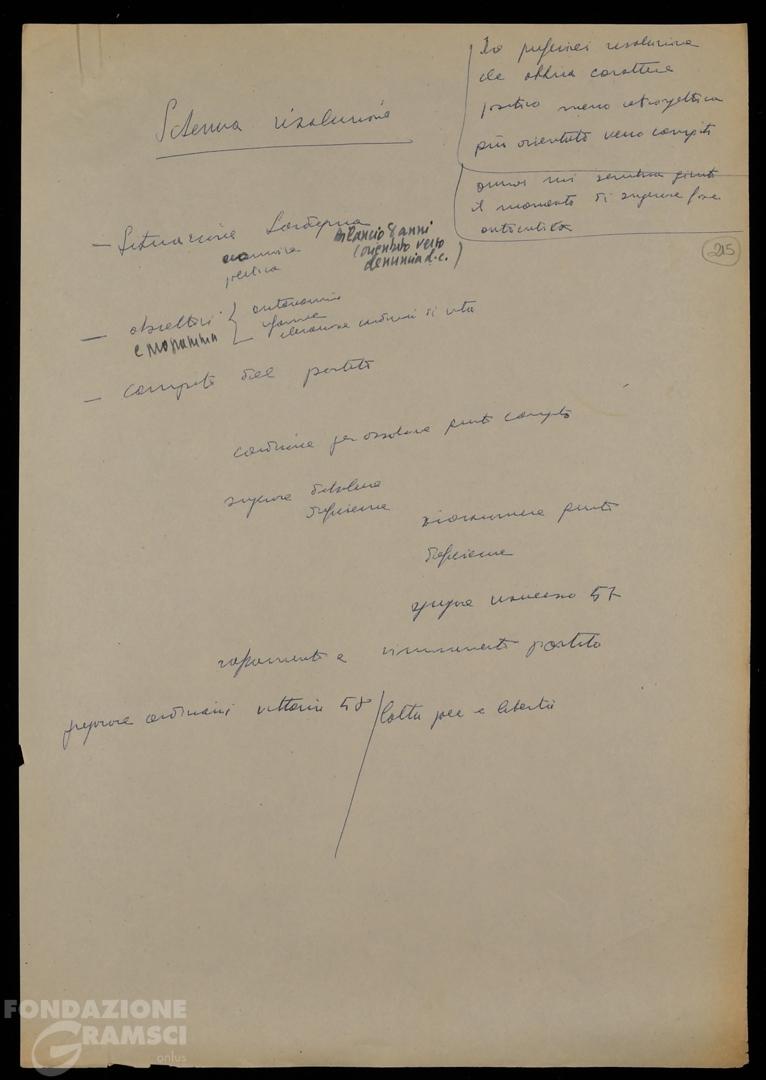 Schema risoluzione
Io preferirei risoluzione
che abbia carattere
positivo meno retrospettiva
più orientata verso compiti
ormai mi sembra giunto
il momento di superare fase
autocritica
215
— Situazione Sardegna
economica
politica
Bilancio 8 anni
(orientato verso
denuncia d.c.)
— obiettivi
e programma
autonomia
riforme
elevazione condizioni di vita
— compiti del partito
condizione per assolvere questi compiti
superare debolezze
deficienze
riassumere punti
deficienze
57
rafforzamento e rinnovamento partito
preparare condizioni vittoria 58 / lotta per e libertà
FONDAZIONE
GRAMSCI
onlus